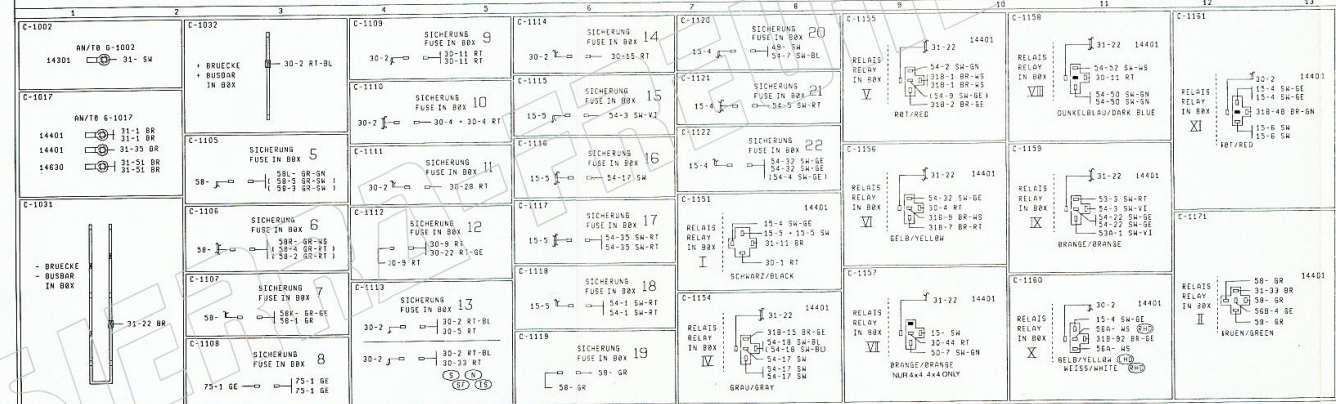 1 2 3 4 5 6 7 8 9 10 11 12 13
C-1002
AN/TO G-1002
14301 31- SW
C-1017
AN/TO G-1017
14401 31-1 BR
31-1 BR
14401 31-35 BR
14630 31-51 BR
31-51 BR
C-1031
- BRUECKE
- BUSBAR
IN BOX
31-22 BR
C-1032
+ BRUECKE
+ BUSBAR
IN BOX
30-2 RT-BL
C-1105
SICHERUNG 5
FUSE IN BOX
58- 58L- GR-GN
( 58-5 GR-SW )
( 58-3 GR-SW )
C-1106
SICHERUNG 6
FUSE IN BOX
58- 58R- GR-WS
( 58-4 GR-RT )
( 58-2 GR-RT )
C-1107
SICHERUNG 7
FUSE IN BOX
58- 58K- GR-GE
58-1 GR
C-1108
SICHERUNG 8
FUSE IN BOX
75-1 GE 75-1 GE
75-1 GE
C-1109
SICHERUNG 9
FUSE IN BOX
30-2 30-11 RT
30-11 RT
C-1110
SICHERUNG 10
FUSE IN BOX
30-2 30-4 + 30-4 RT
C-1111
SICHERUNG 11
FUSE IN BOX
30-2 30-28 RT
C-1112
SICHERUNG 12
FUSE IN BOX
30-9 RT
30-22 RT-GE
30-9 RT
C-1113
SICHERUNG 13
FUSE IN BOX
30-2 30-2 RT-BL
30-5 RT
30-2 30-2 RT-BL
30-33 RT
S N
SF IS
C-1114
SICHERUNG 14
FUSE IN BOX
30-2 30-15 RT
C-1115
SICHERUNG 15
FUSE IN BOX
15-5 54-3 SW-VI
C-1116
SICHERUNG 16
FUSE IN BOX
15-5 54-17 SW
C-1117
SICHERUNG 17
FUSE IN BOX
15-5 54-35 SW-RT
54-35 SW-RT
C-1118
SICHERUNG 18
FUSE IN BOX
15-5 54-1 SW-RT
54-1 SW-RT
C-1119
SICHERUNG 19
FUSE IN BOX
58- GR
58- GR
C-1120
SICHERUNG 20
FUSE IN BOX
15-4 49- SW
54-7 SW-BL
C-1121
SICHERUNG 21
FUSE IN BOX
15-4 54-5 SW-RT
C-1122
SICHERUNG 22
FUSE IN BOX
15-4 54-32 SW-GE
54-32 SW-GE
(154-4 SW-GE)
C-1151
14401
RELAIS
RELAY
IN BOX
I
15-4 SW-GE
15-5 + 15-5 SW
31-11 BR
30-1 RT
SCHWARZ/BLACK
C-1154
14401
31-22
RELAIS
RELAY
IN BOX
IV
31B-15 BR-GE
54-18 SW-BL
(54-18 SW-BL)
54-17 SW
54-17 SW
54-17 SW
GRAU/GRAY
C-1155
31-22 14401
RELAIS
RELAY
IN BOX
V
54-2 SW-GN
31B-1 BR-WS
31B-1 BR-WS
(54-9 SW-GE)
31B-2 BR-GE
ROT/RED
C-1156
31-22 14401
RELAIS
RELAY
IN BOX
VI
54-32 SW-GE
30-4 RT
31B-9 BR-WS
31B-7 BR-RT
GELB/YELLOW
C-1157
31-22 14401
RELAIS
RELAY
IN BOX
VII
15- SW
30-44 RT
50-7 SW-GN
ORANGE/ORANGE
NUR 4x4 4x4 ONLY
C-1158
31-22 14401
RELAIS
RELAY
IN BOX
VIII
54-52 SW-WS
30-11 RT
54-50 SW-GN
54-50 SW-GN
DUNKELBLAU/DARK BLUE
C-1159
31-22 14401
RELAIS
RELAY
IN BOX
IX
53-3 SW-RT
54-3 SW-VI
54-22 SW-GE
54-22 SW-GE
53A-1 SW-VI
ORANGE/ORANGE
C-1160
30-2 14401
RELAIS
RELAY
IN BOX
X
15-4 SW-GE
56A- WS RHD
31B-92 BR-GE
56A- WS
GELB/YELLOW LHD
WEISS/WHITE RHD
C-1161
30-2 14401
RELAIS
RELAY
IN BOX
XI
15-4 SW-GE
15-4 SW-GE
31B-48 BR-GN
15-6 SW
15-6 SW
ROT/RED
C-1171
14401
RELAIS
RELAY
IN BOX
II
58- GR
31-33 BR
58- GR
56B-4 GE
58- GR
GRUEN/GREEN